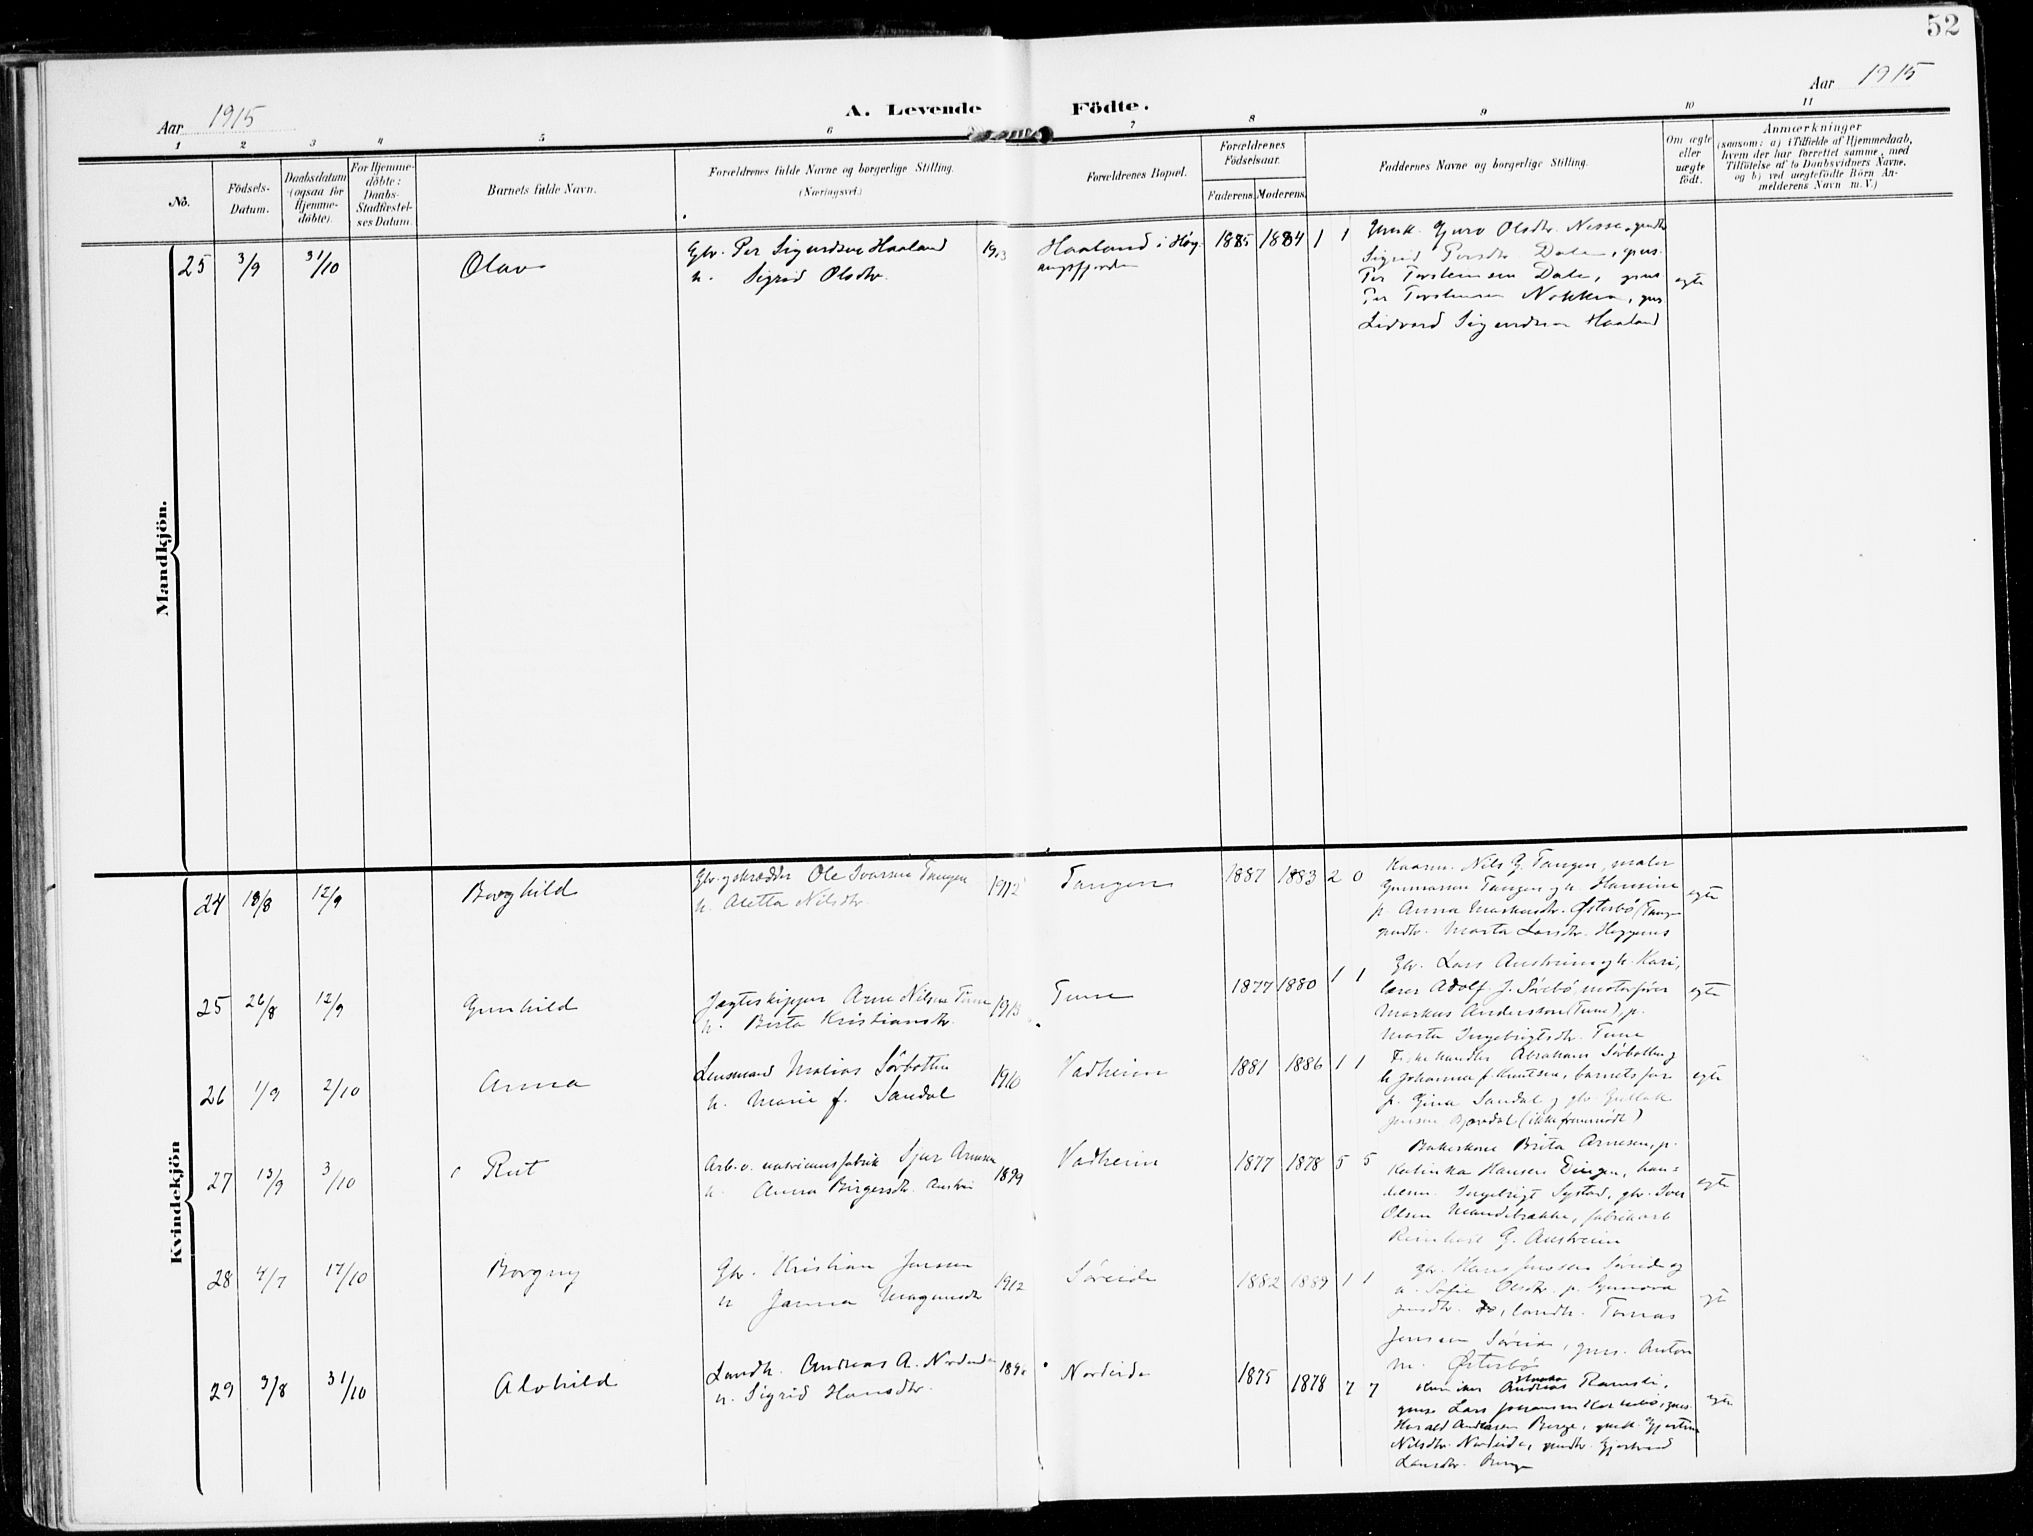 52
Aar 1915
A. Levende Födte.
Aar 1915
1 2 3 4 5 6 7 8 9 10 11
No.
Födsels-
Datum.
Daabsdatum
(ogsaa for
Hjemme-
döbte).
For Hjemme-
döbte:
Daabs-
Stadfæstel-
ses Datum.
Barnets fulde Navn.
Forældrenes fulde Navne og borgerlige Stilling.
(Næringsvei.)
Forældrenes Bopæl.
Forældrenes
Födselsaar.
Faderens. Moderens.
Faddernes Navne og borgerlige Stilling.
Om ægte
eller
uægte
födt.
Anmærkninger
(saasom: a) i Tilfælde af Hjemmedaab,
hvem der har forrettet samme, med
Tilföielse af to Daabsvidners Navne,
og b) ved uægtefödte Börn An-
melderens Navn m. V.)
Mandkjön.
25 3/9 31/10 Olav
Gbr. Per Sigurdsen Haaland
h. Sigrid Olsdtr.
1913
Haaland i Høy-
angsfjorden
1885 1884 1 1
Gmk. Gjuro Olsdtr. Nesse, gmdtr
Sigrid Persdtr. Dale, gms.
Per Torsteinsen Dale, gms
Per Torsteinsen Nokken, gms
Lidvard Sigurdsen Haaland
egte
Kvindekjön
24 18/8 12/9 Borghild
Gbr. og skrædder Ole Ivarsen Tangen
h. Aletta Nilsdtr.
1912
Tangen
1887 1883 2 0
Kaarm. Nils G. Tangen, maler
Gunnarsen Tangen og h. Hansine
p. Anna Markusdtr. Østerbø (Tangen
gmdtr. Marta Larsdtr.
egte
25 26/8 12/9 Gunhild
Jagteskipper Arne Nilsen Tune
h. Berta Kristiansdtr.
1913
Tune
1877 1880 1 1
Gbr. Lars Austreim og h. Kari,
lærer Adolf J. Sørebø, motorfører
Markus Andersson (Tune), p.
Marta Ingebrigtsdtr. Tune
egte
26 1/9 2/10 Anna
Lensmand Matias Sørbotten
h. Marie f. Sandal
1910
Vadheim
1881 1886 1 1
Fiskehandler Abraham Sørbotten og
h. Johanna f. Knutsen, barnets far
p. Gina Sandal og gbr. Gullak
Jensen (ikke fremmødt)
egte
27 13/9 3/10 Rut
Arb. v. Sjur Arnesen
h. Anna Birgersdtr.
1899
Vadheim
1877 1878 5 5
Bakerkone Brita Arnesen, p.
Katinka Hansen Eingen, han-
delsm. Ingebrigt Systad, gbr. Iver
Olsen, fabrikarb
Reinhart G. Austreim
egte
28 4/7 17/10 Borgny
Gbr. Kristian Jensen
h. Janna Magnusdtr
1912
Søreide
1882 1889 1 1
gbr. Hans Jensen Søreide og
h. Sofie Olsdtr. p. Gunnora
Jensdtr. do, landh. Tomas
Jensen Søreide, gms. Anton
M. Østerbø
egte
29 3/8 31/10 Alvhild
Landh. Andreas A. Nordeide
h. Sigrid Hansdtr.
Nordeide
1875 1878 7 7
Andreas Ramsli,
gms. Lars Johansen
Harald Andersen Berge, gmk. Gjertine
Nilsdtr. Nordeide, gmdtr. Gjertrud
Larsdtr. Berge
egte